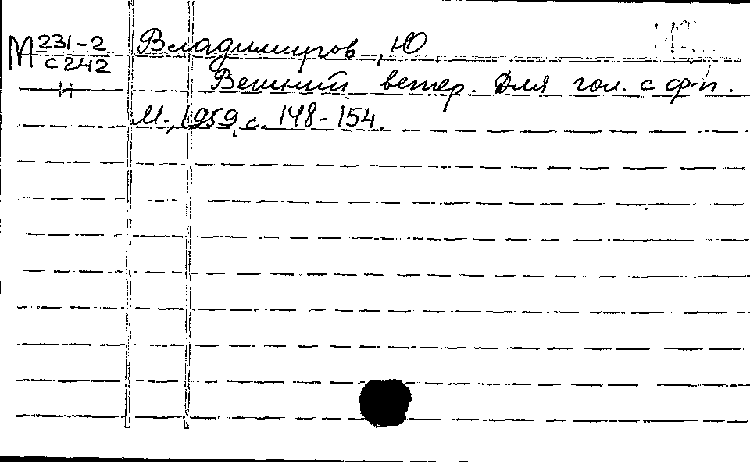 М 231-2 Владимиров, Ю
с 242 Вешний ветер. Для гол. с ф-п.
н М., 1959, с. 148-154.